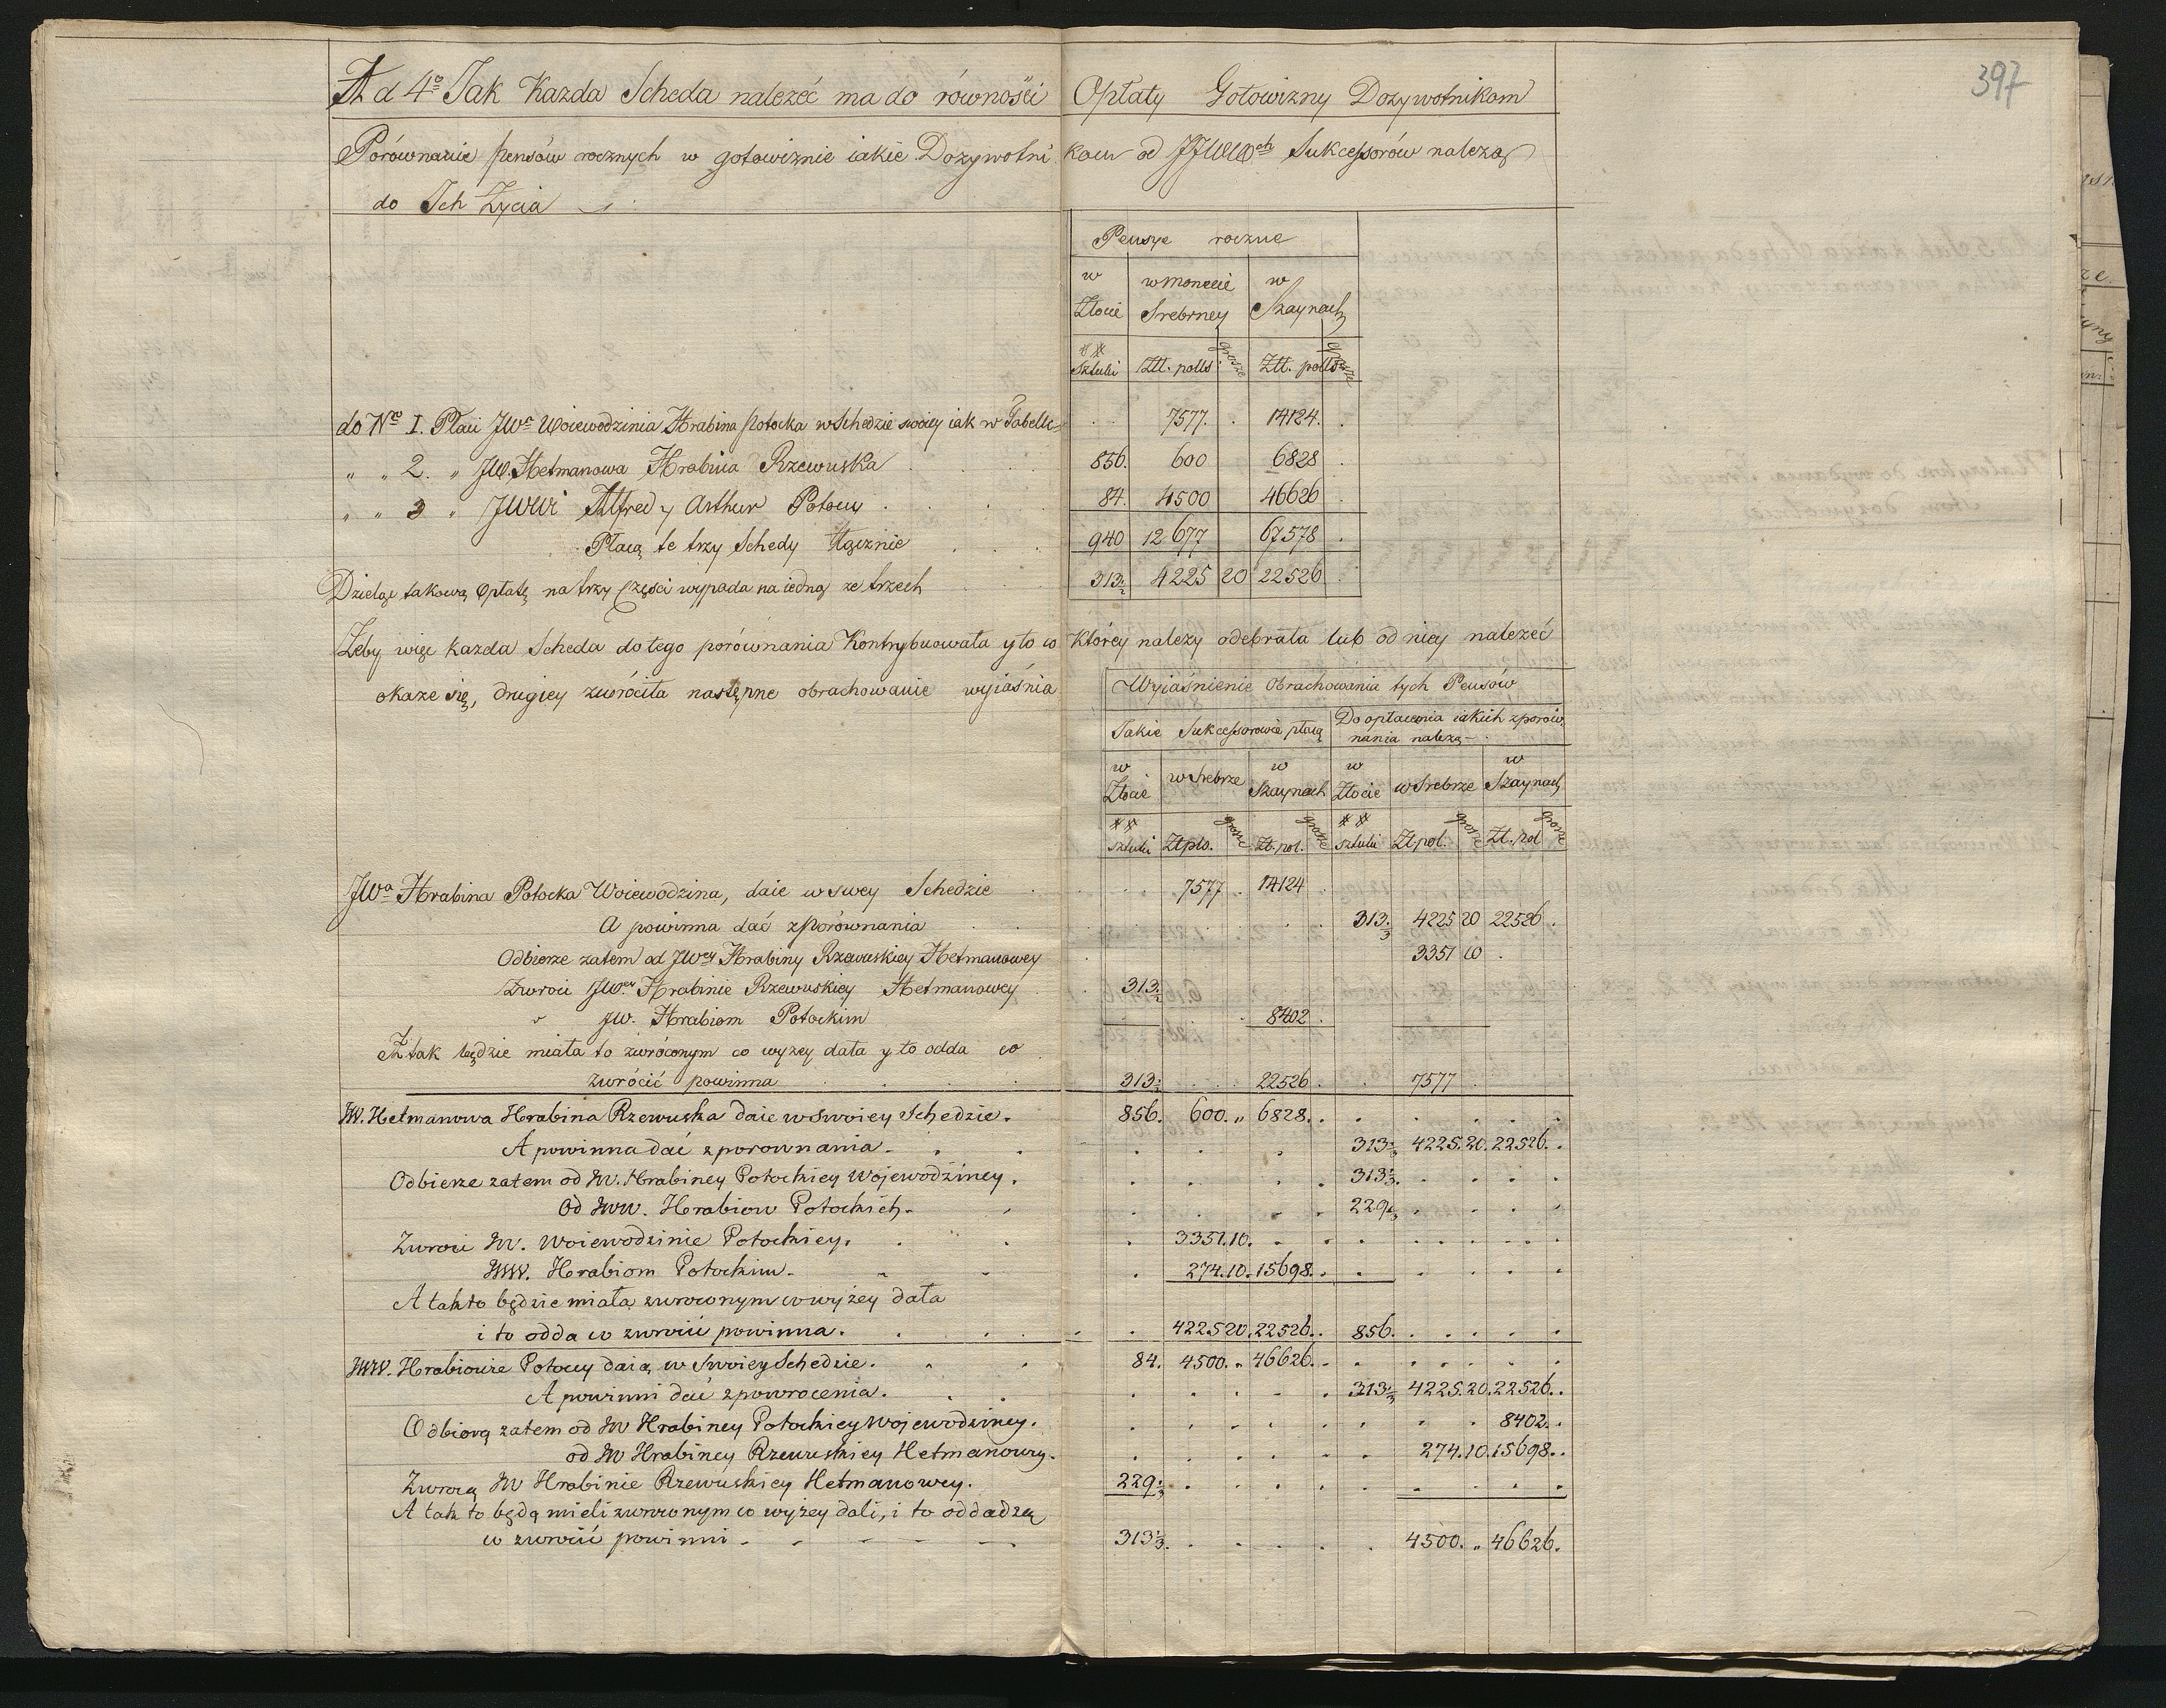 397
Ad 4º Jak Kazda Scheda nalezéć ma do równości Opłaty Gotowizny Dozywotnikom
Porównanie pensów rocznych w gotowiznie iakie Dozywotnikom od JJWWch Sukcessorów nalezą
do Ich Zycia
Pensye roczne
w Złocie | w Monecie Srebrney | w Szaynach
## Sztuki | Złł. polls | grosze | Złł. polls | grosze
do Nro I. Płaci JWa Woiewodzinia Hrabina Potocka w Schedzie swoiey iak w Tabelli . . 7577. . 14124. .
„ „ 2. „ JW. Hetmanowa Hrabina Rzewuska . . . 856. 600 6828 .
„ „ 3 „ JWWi Alfred y Arthur Potoccy . . . 84. 4500 46626 .
Płacą te trzy Schedy łącznie . . . 940 12677 67578 .
Dzieląc takową Opłatę na trzy części wypada na iedną ze trzech . . 313⅓ 4225 20 22526 .
Zeby więc kazda Scheda do tego porównania Kontrybuowała y to co Którey nalezy odebrała lub od niey nalezéć
okaze się, drugiey zwróciła następne obrachowanie wyiaśnia
Wyiaśnienie Obrachowania tych Pensów
Jakie Sukcessorowie płacą | Do opłacenia iakich z porównania nalezą
w Złocie | w Srebrze | w Szaynach | w Złocie | w Srebrze | w Szaynach
## sztuki | Zł pls. | grosze | Zł. pol. | grosze | ## sztuki | Zł pol. | grosze | Zł. pol | grosze
JWa Hrabina Potocka Woiewodzina, daie w swey Schedzie . . . 7577 . 14124 .
A powinna dać z porównania . . . 313⅓ 4225 20 22526 .
Odbierze zatem od JWey Hrabiny Rzewuskiey Hetmanowey . 3351 10 .
Zwroci JWey Hrabinie Rzewuskiey Hetmanowey . 313⅓
„ JW. Hrabiom Potockim . 8402 .
A tak będzie miała to zwróconym co wyzey dała y to odda co
zwrócić powinna . . . 313⅓ . . . 22526 . . 7577 .
JW. Hetmanowa Hrabina Rzewuska daie w Swoiey Schedzie. 856. 600. „ 6828. .
A powinna dać z porownania. . . 313⅓ 4225. 20. 22526. .
Odbierze zatem od JW. Hrabiney Potockiey Wojewodziney. 313⅓.
Od JWW. Hrabiow Potockich. . 229⅓.
Zwroci JW. Woiewodzinie Potockiey. . . 3351. 10.
JWW. Hrabiom Potockim. . . 274. 10. 15698. .
A tak to będzie miała zwroconym co wyżey dała
i to odda co zwrócić powinna. . . . 4225 20. 22526. . 856.
JWW. Hrabiowie Potoccy daią w Swoiey Schedzie. . . 84. 4500. „ 46626. .
A powinni dać z powrocenia. . . 313⅓ 4225. 20. 22526. .
Odbiorą zatem od JW Hrabiney Potockiey Wojewodziney. 8402. .
od JW Hrabiney Rzewuskiey Hetmanowey. 274. 10. 15698. .
Zwrocą JW Hrabinie Rzewuskiey Hetmanowey. 229⅓.
A tak to będą mieli zwroconym co wyżey dali, i to oddadzą
co zwrócić powinni . . . . 313⅓. 4500. „ 46626.